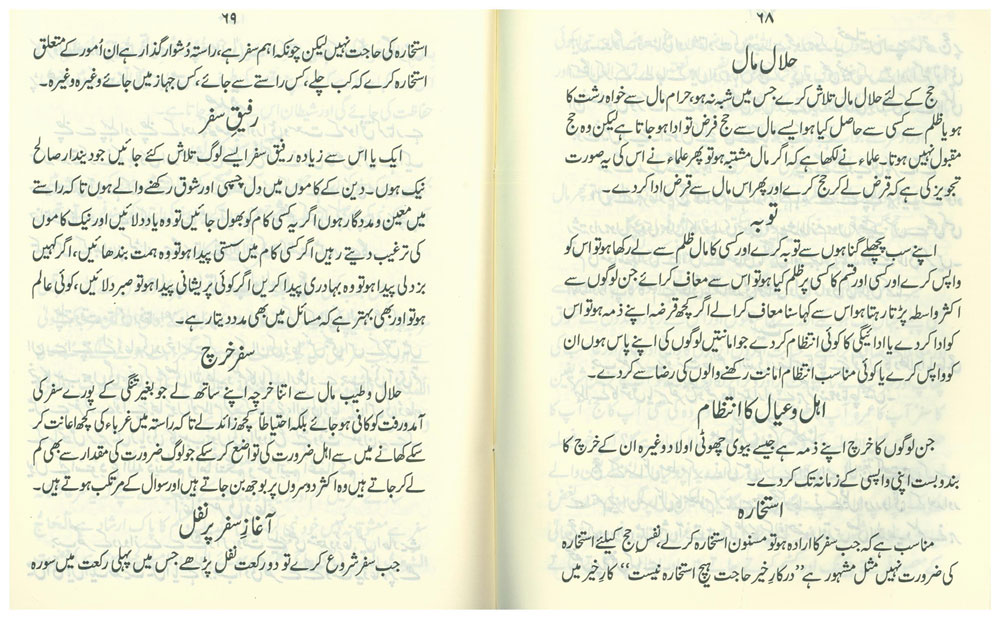 ۶۸
حلال مال
حج کے لئے حلال مال تلاش کرے جس میں شبہ نہ ہو، حرام مال سے خواہ رشت کا
ہو یا ظلم سے کسی سے حاصل کیا ہو ایسے مال سے حج فرض تو ادا ہو جاتا ہے لیکن وہ حج
مقبول نہیں ہوتا۔ علماء نے لکھا ہے کہ اگر مال مشتبہ ہو تو پھر علماء نے اس کی یہ صورت
تجویز کی ہے کہ قرض لے کر حج کرے اور پھر اس مال سے قرض ادا کردے۔
توبہ
اپنے سب پچھلے گناہوں سے توبہ کرے اور کسی کا مال ظلم سے لے رکھا ہو تو اس کو
واپس کرے اور کسی اور قسم کا کسی پر ظلم کیا ہو تو اس سے معاف کرائے جن لوگوں سے
اکثر واسطہ پڑتا رہتا ہو اس سے کہا سنا معاف کرالے اگر کچھ قرضہ اپنے ذمہ ہو تو اس
کو ادا کردے یا ادائیگی کا کوئی انتظام کردے جو امانتیں لوگوں کی اپنے پاس ہوں ان
کو واپس کرے یا کوئی مناسب انتظام امانت رکھنے والوں کی رضا سے کردے۔
اہل وعیال کا انتظام
جن لوگوں کا خرچ اپنے ذمہ ہے جیسے بیوی چھوٹی اولاد وغیرہ ان کے خرچ کا
بندوبست اپنی واپسی کے زمانہ تک کردے۔
استخارہ
مناسب ہے کہ جب سفر کا ارادہ ہو تو مسنون استخارہ کرلے، نفس حج کیلئے استخارہ
کی ضرورت نہیں مثل مشہور ہے ”درکارِ خیر حاجت ہیچ استخارہ نیست“ کارِ خیر میں
۶۹
استخارہ کی حاجت نہیں لیکن چونکہ اہم سفر ہے، راستہ دُشوار گذار ہے ان اُمور کے متعلق
استخارہ کرے کہ کب چلے، کس راستے سے جائے، کس جہاز میں جائے وغیرہ وغیرہ۔
رفیقِ سفر
ایک یا اس سے زیادہ رفیق سفر ایسے لوگ تلاش کئے جائیں جو دیندار صالح
نیک ہوں۔ دین کے کاموں میں دل چسپی اور شوق رکھنے والے ہوں تاکہ راستے
میں معین ومددگار ہوں اگر یہ کسی کام کو بھول جائیں تو وہ یاد دلائیں اور نیک کاموں
کی ترغیب دیتے رہیں اگر کسی کام میں سستی پیدا ہو تو وہ ہمت بندھائیں، اگر کہیں
بزدلی پیدا ہو تو وہ بہادری پیدا کریں اگر کوئی پریشانی پیدا ہو تو صبر دلائیں، کوئی عالم
ہو تو اور بھی بہتر ہے کہ مسائل میں بھی مدد دیتا رہے۔
سفر خرچ
حلال وطیب مال سے اتنا خرچہ اپنے ساتھ لے جو بغیر تنگی کے پورے سفر کی
آمدورفت کو کافی ہو جائے بلکہ احتیاطاً کچھ زائد لے تاکہ راستہ میں غرباء کی کچھ اعانت کر
سکے کھانے میں سے اہل ضرورت کی تواضع کر سکے جو لوگ ضرورت کی مقدار سے بھی کم
لے کر جاتے ہیں وہ اکثر دوسروں پر بوجھ بن جاتے ہیں اور سوال کے مرتکب ہوتے ہیں۔
آغازِ سفر پر نفل
جب سفر شروع کرے تو دو رکعت نفل پڑھے جس میں پہلی رکعت میں سورہ